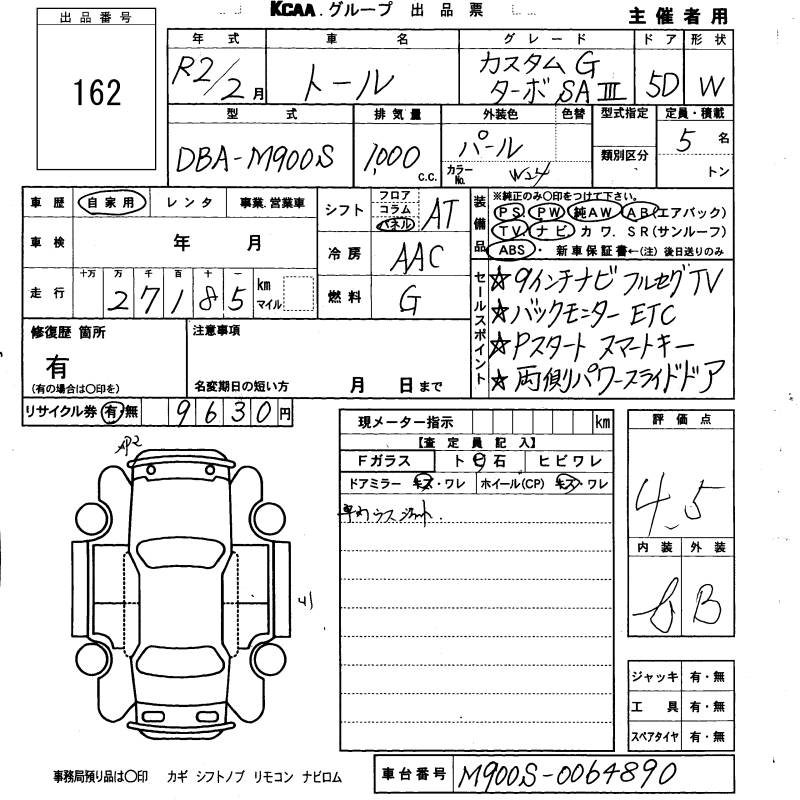 KCAA.グループ 出品票
主催者用
出品番号
162
年式 車名 グレード ドア 形状
R2/2月 トール カスタムG ターボSAⅢ 5D W
型式 排気量 外装色 色替 型式指定 定員・積載
DBA-M900S 1,000 c.c. パール カラーNo. W24 類別区分 5名 トン
車歴 自家用 レンタ 事業.営業車
シフト フロア コラム パネル AT
装備品 ※純正のみ〇印をつけて下さい。
PS. PW 純AW AB(エアバック)
TV. ナビ. カワ. SR(サンルーフ)
ABS・ 新車保証書←(注)後日送りのみ
車検 年 月
冷房 AAC
走行 十万 万 千 百 十 一 km マイル
2 7 1 8 5
燃料 G
セールスポイント
☆9インチナビ フルセグTV
☆バックモニター ETC
☆Pスタート スマートキー
☆両側パワースライドドア
修復歴 箇所
有
(有の場合は〇印を)
注意事項
名変期日の短い方 月 日まで
リサイクル券 有・無 9630円
現メーター指示 km
【査定員記入】
Fガラス ト ビ 石 ヒビワレ
ドアミラー キズ・ワレ ホイール(CP) キズ・ワレ
評価点
4.5
内装 外装
B
AP2
ジャッキ 有・無
工具 有・無
スペアタイヤ 有・無
事務局預り品は〇印 カギ シフトノブ リモコン ナビロム
車台番号 M900S-0064890